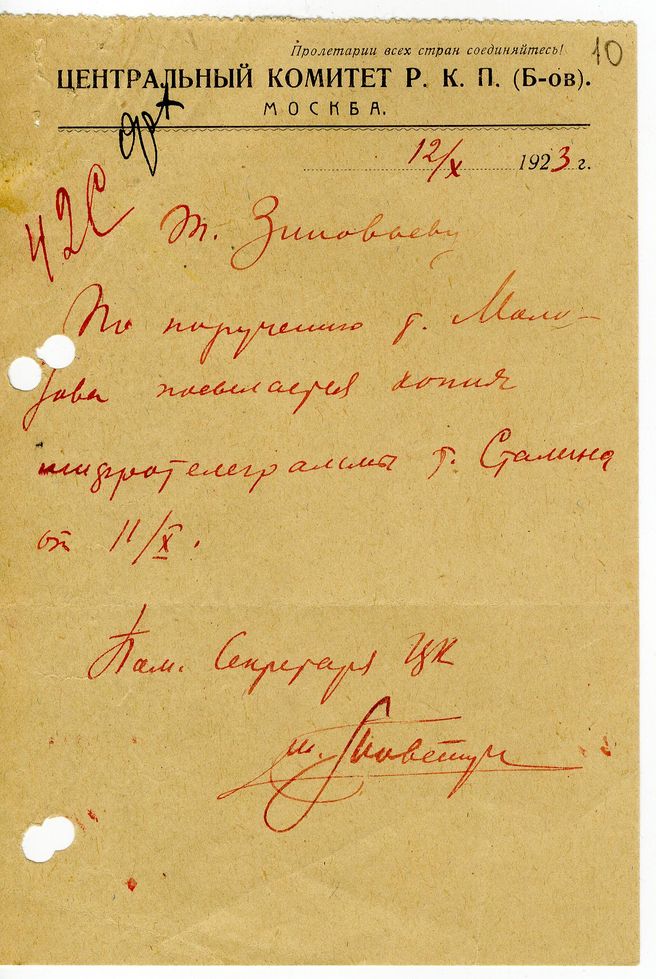 Пролетарии всех стран соединяйтесь!
10
ЦЕНТРАЛЬНЫЙ КОМИТЕТ Р. К. П. (Б-ов).
МОСКВА.
12/X 1923 г.
42С
т. Зиновьеву
По поручению т. Моло-
това посылается копия
шифротелеграммы т. Сталина
от 11/X.
Пом. Секретаря ЦК